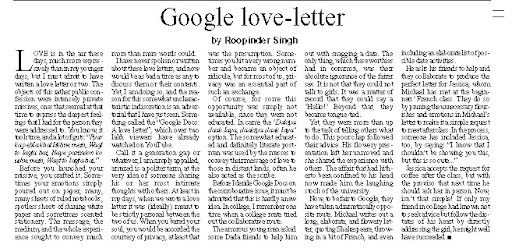 Google love-letter
by Roopinder Singh
LOVE is in the air these
days, much more expres-
sively than in my younger
days, but I must admit to have
written a love letter or two. The
objects of that rather public con-
fession were intensely private
missives, ones that seemed at that
time to express the deepest feel-
ings that I had for the person they
were addressed to. You know, it
took time, and a lot of guts:
Before you launched your
missive, you crafted it. Some-
times your emotions simply
poured out on paper, many,
many sheets of ruled notebooks,
spotless sheets of shining white
paper and sometimes scented
stationery. The message, the
medium, and the whole experi-
ence sought to convey much
more than mere words could.
I have never spoken or written
about these love letters, and now
would be as bad a time as any to
discuss them or their content.
Yet, I am doing so, and the rea-
son for this somewhat uncharac-
teristic indiscretion is an adver-
tisal that I have just seen. Some-
thing called the "Google Docs:
A love letter", which over two
lakh viewers have already
watched on YouTube.
Call it a generation gap or
whatever, I am simply appalled,
stressed is a politer term, at the
very idea of someone sharing
his or her most intimate
thoughts with others. At least in
my days, when we wrote a love
letter it was (ideally) meant to
be strictly personal between the
two of us. When you bared your
soul, you would be accorded the
courtesy of privacy, at least that
was the presumption. Some-
times you bet a very wrong num-
ber and became an object of
ridicule, but for most of us, pri-
vacy was an essential part of
such an exchange.
Of course, for some this
opportunity was simply not
available, since they were not
educated. In came the
option. The somewhat educat-
ed and definitely literate post-
man was used by the masses to
convey their message of love to
those in distant lands, often he
also acted as the scribe.
Before I deride Google Doc on
the cooperative issue, it must be
admitted that this is hardly a new
idea. In college, I remember one
time when a college route tried
out the collaborative route.
The amorous young man asked
some Dada friends to help him
out with snagging a date. The
only thing, which these worthies
had in common, was their
absolute ignorance of the fairer
sex. It is not that they could not
talk to girls. It was a matter of
record that they could say a
"Hello!" Beyond that, they
became tongue-tied.
Yet they were more than up
to the task of telling others what
to do. This poor chap followed
their advice. His flowery pres-
entation left him unmoved and
she shared the experience with
others. The affair that had hith-
erto been confined to his head
now made him the laughing
stock of the university.
Now, to be fair to Google, they
have taken a diametrically oppo-
site route. Michael writes out a
long, elaborate, and flowery let-
ter, quoting Shakespeare, throw-
ing in a bit of French, and even
including an elaborate list of pos-
sible date activities.
He asks his friends to help and
they collaborate to produce the
perfect letter for Jessica, whom
Michael has met at the begin-
ners' French class. They do so
by pruning the unnecessary flour-
ishes and emotions in Michael's
letter to make it a simple request
to meet after class. In the process,
someone has included Jessica,
too, by saying "I know that I
shouldn't be showing you this,
but this is so cute..."
Jessica accepts the request for
coffee after the class, but with
the proviso that next time he
should ask her in person. Now,
isn't that simple! If only my
friend in college had known not
to seek advice but follow the dic-
tates of his heart by directly
addressing the girl, he might well
have succeeded.